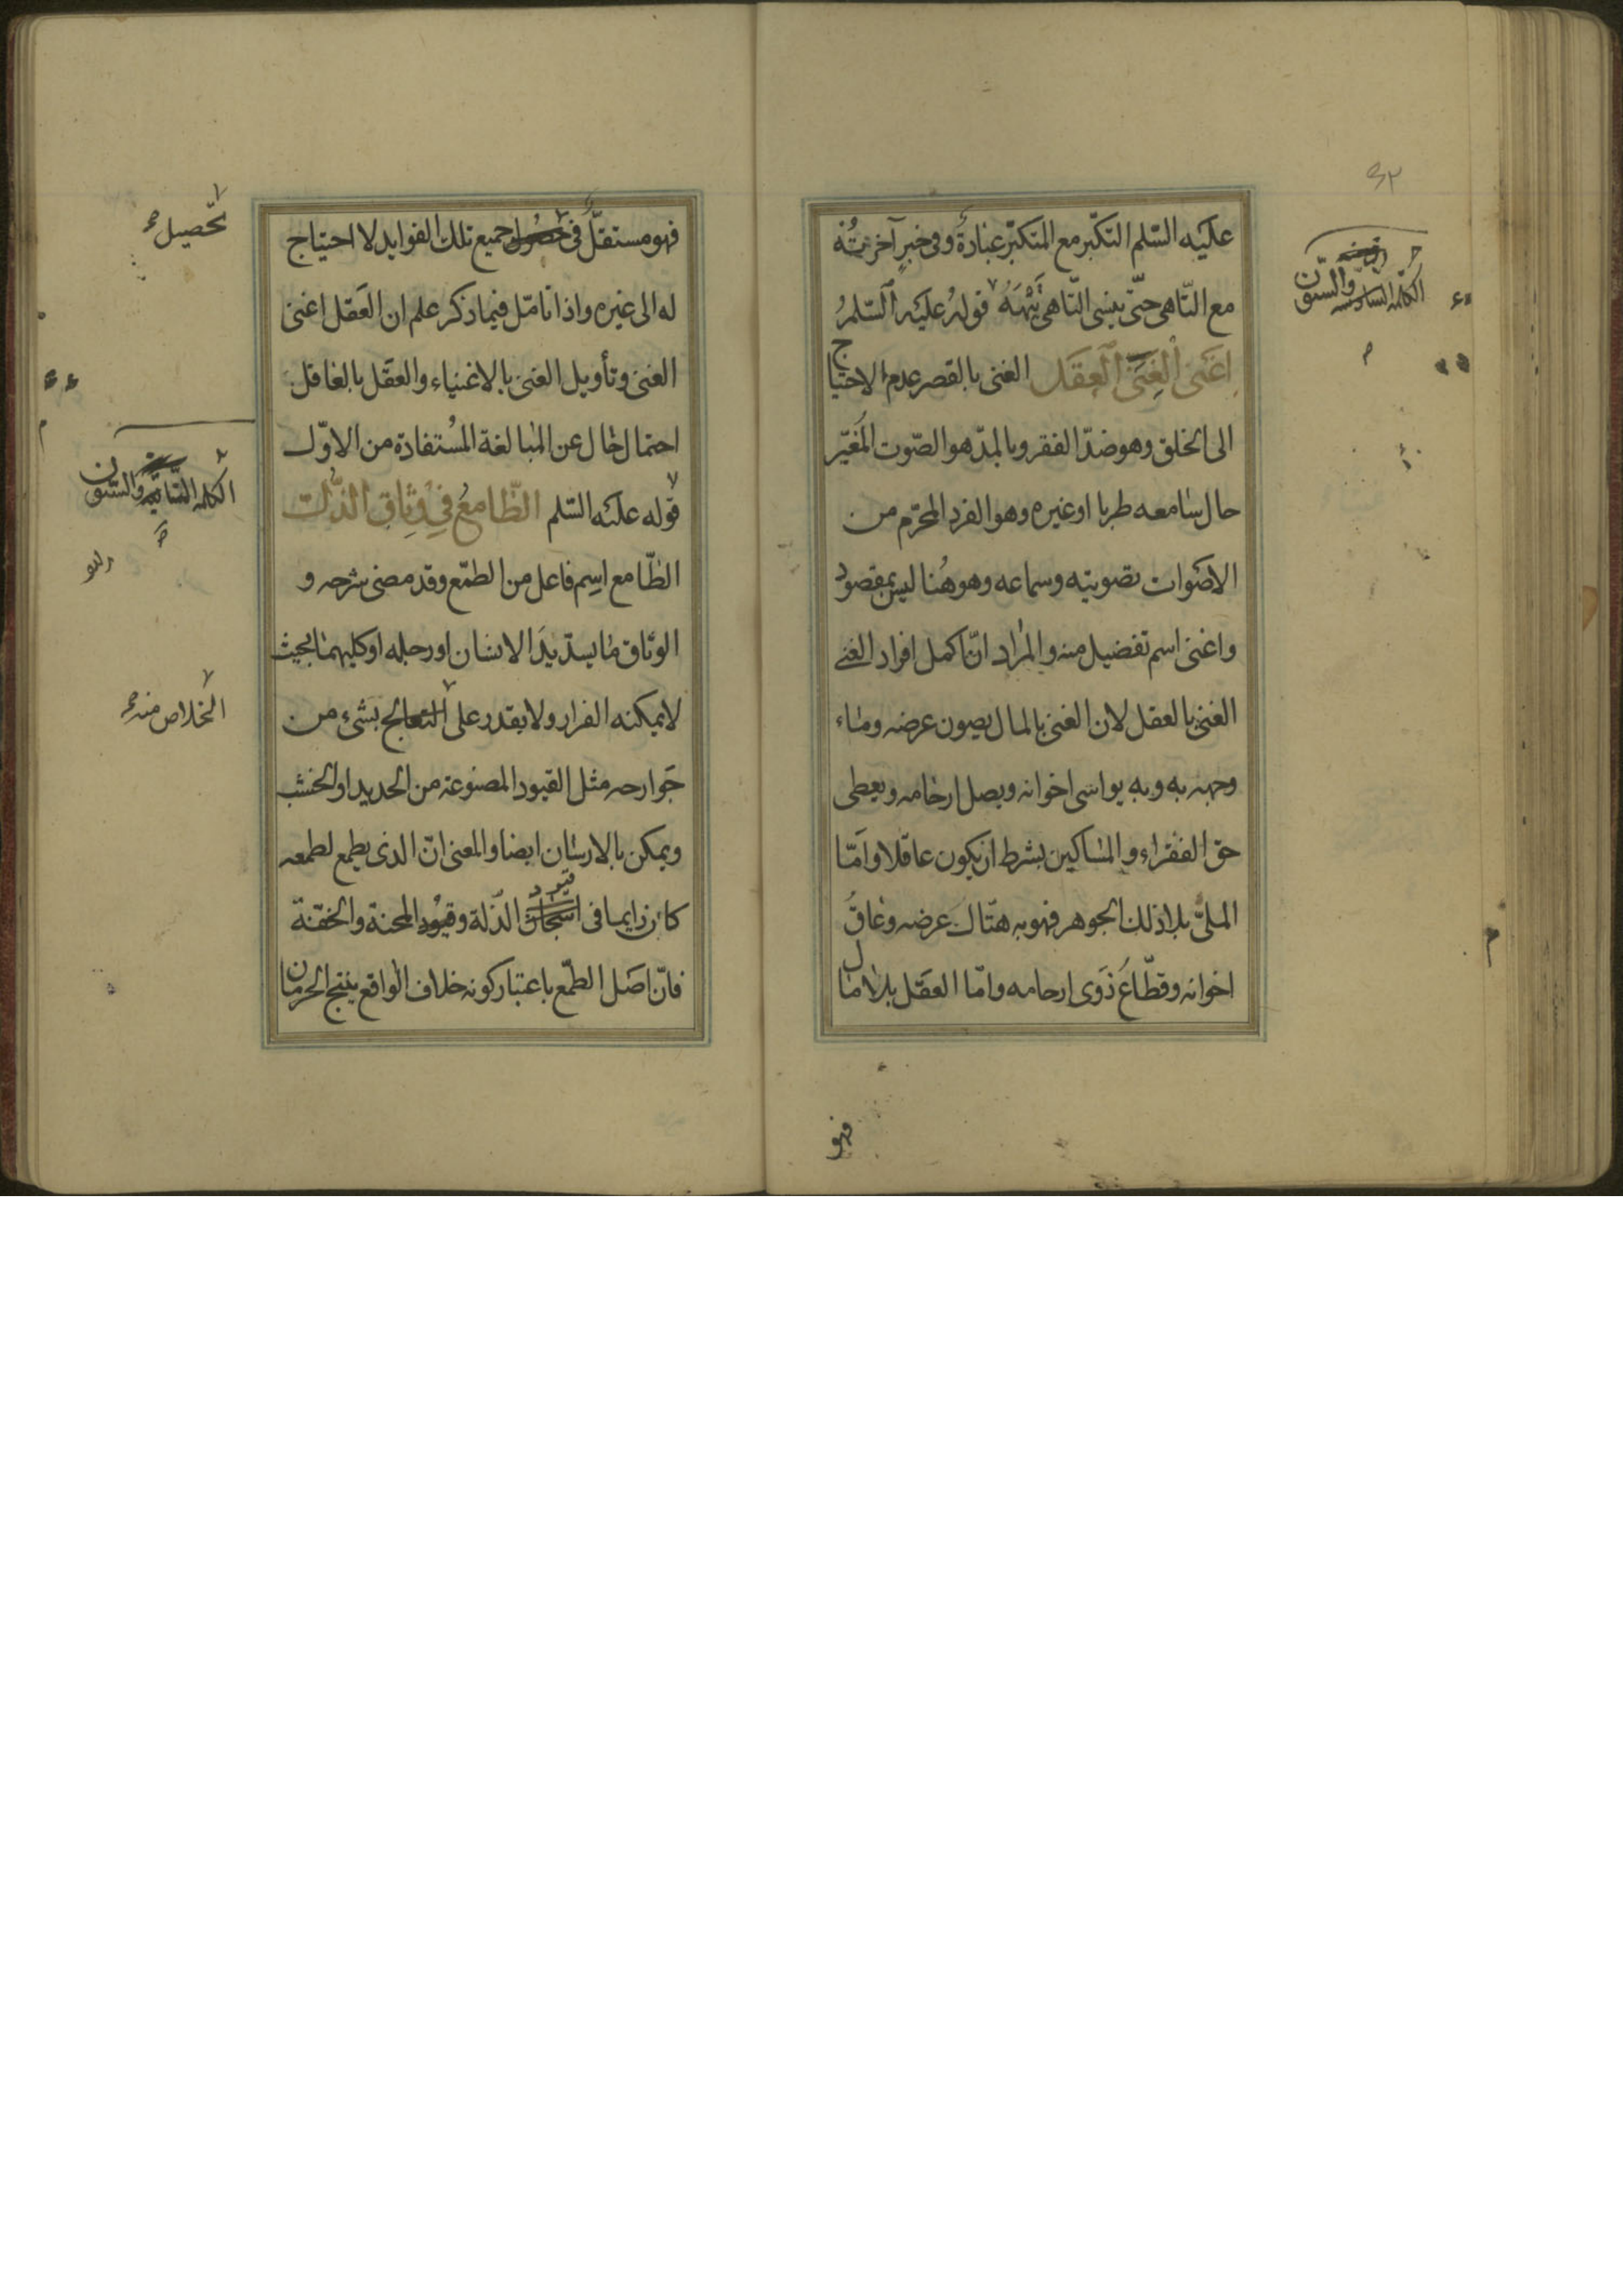 ٤٢
عليه السّلم التكبّر مع المتكبّر عبادة وفى خبرٍ آخر تُه
مع التّاهى حتّى ينسى التّاهى تَيْهَهُ قوله عليه السّلمُ
اغنى الغِنَى العقل الغنى بالقصر عدم الاحتياج
الى الخلق وهو ضدّ الفقر وبالمدّ هو الصّوت المُغيّر
حال سامعه طربا او غيره وهو الفرد المحرّم من
الاصوات تصويته وسماعه وهو هُنا ليس بمقصود
واغنى اسم تفضيل منه والمراد انّ اكمل افراد الغنى
الغنى بالعقل لان الغنى بالمال يصون عرضه وماء
وجهه به وبه يواسى اخوانه ويصل ارحامه ويعطى
حق الفقراء والمساكين بشرط ان يكون عاقلا وامّا
الملىّ بلا ذلك الجوهر فهو به هتّاك عرضه وعاقُّ
اخوانه وقطّاعُ ذوى ارحامه وامّا العقل بلا مال
فهو
الكلمة السادسة والستون
فهو مستقلّ فى حصول جميع تلك الفوايد لا احتياج
له الى غيره واذا تامّل فيما ذكر علم ان العقل اغنى
الغنى وتأويل الغنى بالاغنياء والعقل بالعاقل
احتمال خال عن المبالغة المُستفادة من الاوّل
قوله عليه السّلم الطّامعُ فِي وِثاقِ الذُّلِّ
الطّامع اسِم فاعل من الطمّع وقد مضى شرحه و
الوثاق ما يسدّ يدَ الانسان او رجله او كليهما بحيث
لا يمكنه الفرار ولا يقدر على التعالج بشىء من
جوارحه مثل القيود المصنوعة من الحديد او الخشب
ويمكن بالارسان ايضا والمعنى انّ الذى يطمع لطمعه
كان دايما فى اسجان الذّلة وقيود المحنة والخفّة
قيود
فانّ اصل الطمّع باعتبار كونه خلاف الواقع ينتج الحرمان
تحّصيل
الكلمه الثانية والستون
الخلاص منه